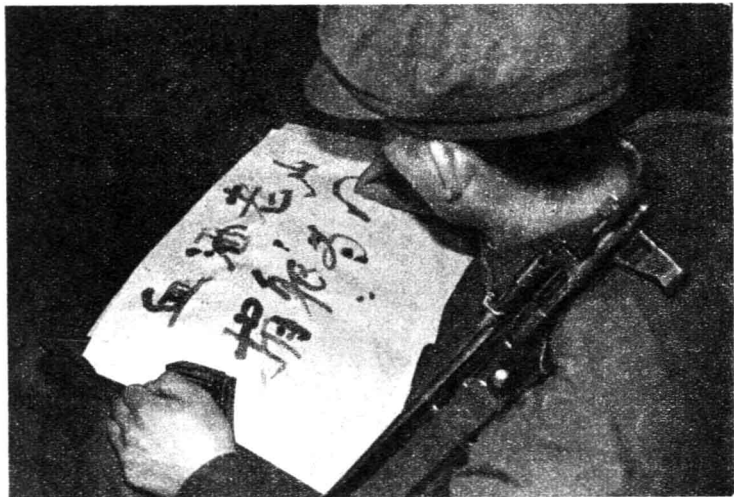 血洒老山
捐躯为